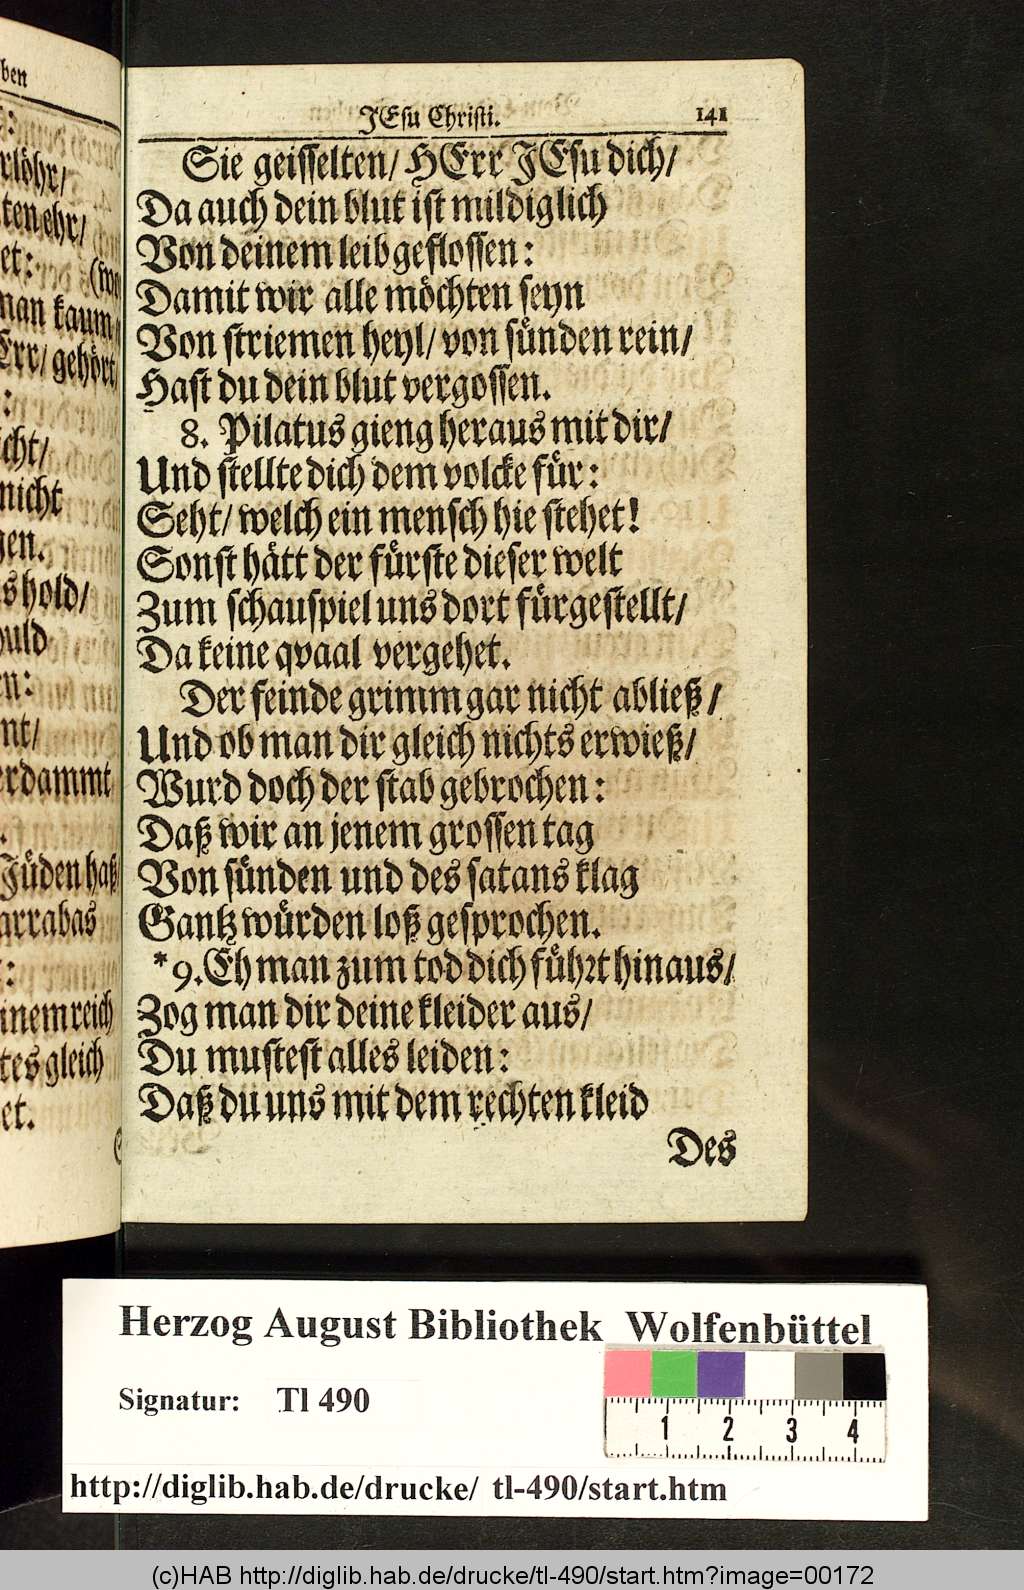 ben
rlöhr/
ten ehr/
et:
man kaum
Err/ gehört/
cht/
nicht
gen.
s hold/
uld
en:
mt/
erdammt
Jüden haß
arrabas
inem reich
tes gleich
et.
JEsu Christi. 141
Sie geisselten/ HErr JEsu dich/
Da auch dein blut ist mildiglich
Von deinem leib geflossen:
Damit wir alle möchten seyn
Von striemen heyl/ von sünden rein/
Hast du dein blut vergossen.
8. Pilatus gieng heraus mit dir/
Und stellte dich dem volcke für:
Seht/ welch ein mensch hie stehet!
Sonst hätt der fürste dieser welt
Zum schauspiel uns dort fürgestellt/
Da keine qvaal vergehet.
Der feinde grimm gar nicht abließ/
Und ob man dir gleich nichts erwieß/
Wurd doch der stab gebrochen:
Daß wir an jenem grossen tag
Von sünden und des satans klag
Gantz würden loß gesprochen.
* 9. Eh man zum tod dich führt hinaus/
Zog man dir deine kleider aus/
Du mustest alles leiden:
Daß du uns mit dem rechten kleid
Des
Herzog August Bibliothek Wolfenbüttel
Signatur: Tl 490
1 2 3 4
http://diglib.hab.de/drucke/ tl-490/start.htm
(c)HAB http://diglib.hab.de/drucke/tl-490/start.htm?image=00172